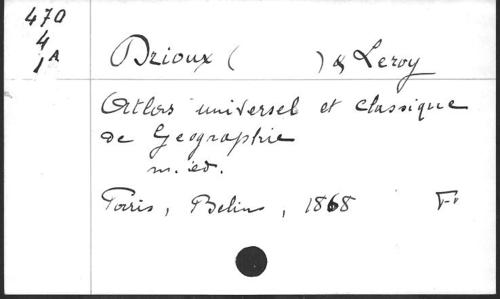 470
4
1A
Drioux ( ) & Leroy
Atlas universel et classique
de Geographie
n. ed.
Paris, Belin, 1868 Fº